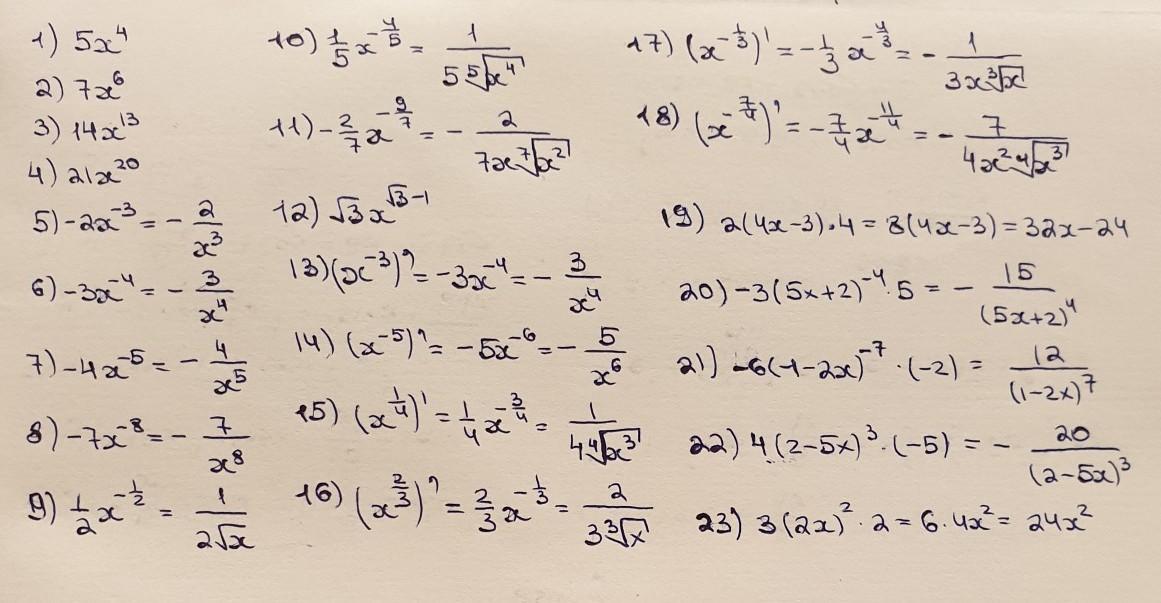 1) 5x⁴
2) 7x⁶
3) 14x¹³
4) 21x²⁰
5) -2x⁻³ = - 2/x³
6) -3x⁻⁴ = - 3/x⁴
7) -4x⁻⁵ = - 4/x⁵
8) -7x⁻⁸ = - 7/x⁸
9) 1/2 x^(-1/2) = 1/(2√x)
10) 1/5 x^(-4/5) = 1/(5 ⁵√(x⁴))
11) - 2/7 x^(-9/7) = - 2/(7x ⁷√(x²))
12) √3 x^(√3-1)
13) (x⁻³)' = -3x⁻⁴ = - 3/x⁴
14) (x⁻⁵)' = -5x⁻⁶ = - 5/x⁶
15) (x^(1/4))' = 1/4 x^(-3/4) = 1/(4 ⁴√(x³))
16) (x^(2/3))' = 2/3 x^(-1/3) = 2/(3 ³√x)
17) (x^(-1/3))' = - 1/3 x^(-4/3) = - 1/(3x ³√x)
18) (x^(-7/4))' = - 7/4 x^(-11/4) = - 7/(4x² ⁴√(x³))
19) 2(4x-3)·4 = 8(4x-3) = 32x-24
20) -3(5x+2)⁻⁴·5 = - 15/(5x+2)⁴
21) -6(-1-2x)⁻⁷·(-2) = 12/(1-2x)⁷
22) 4(2-5x)³·(-5) = - 20/(2-5x)³
23) 3(2x)²·2 = 6·4x² = 24x²